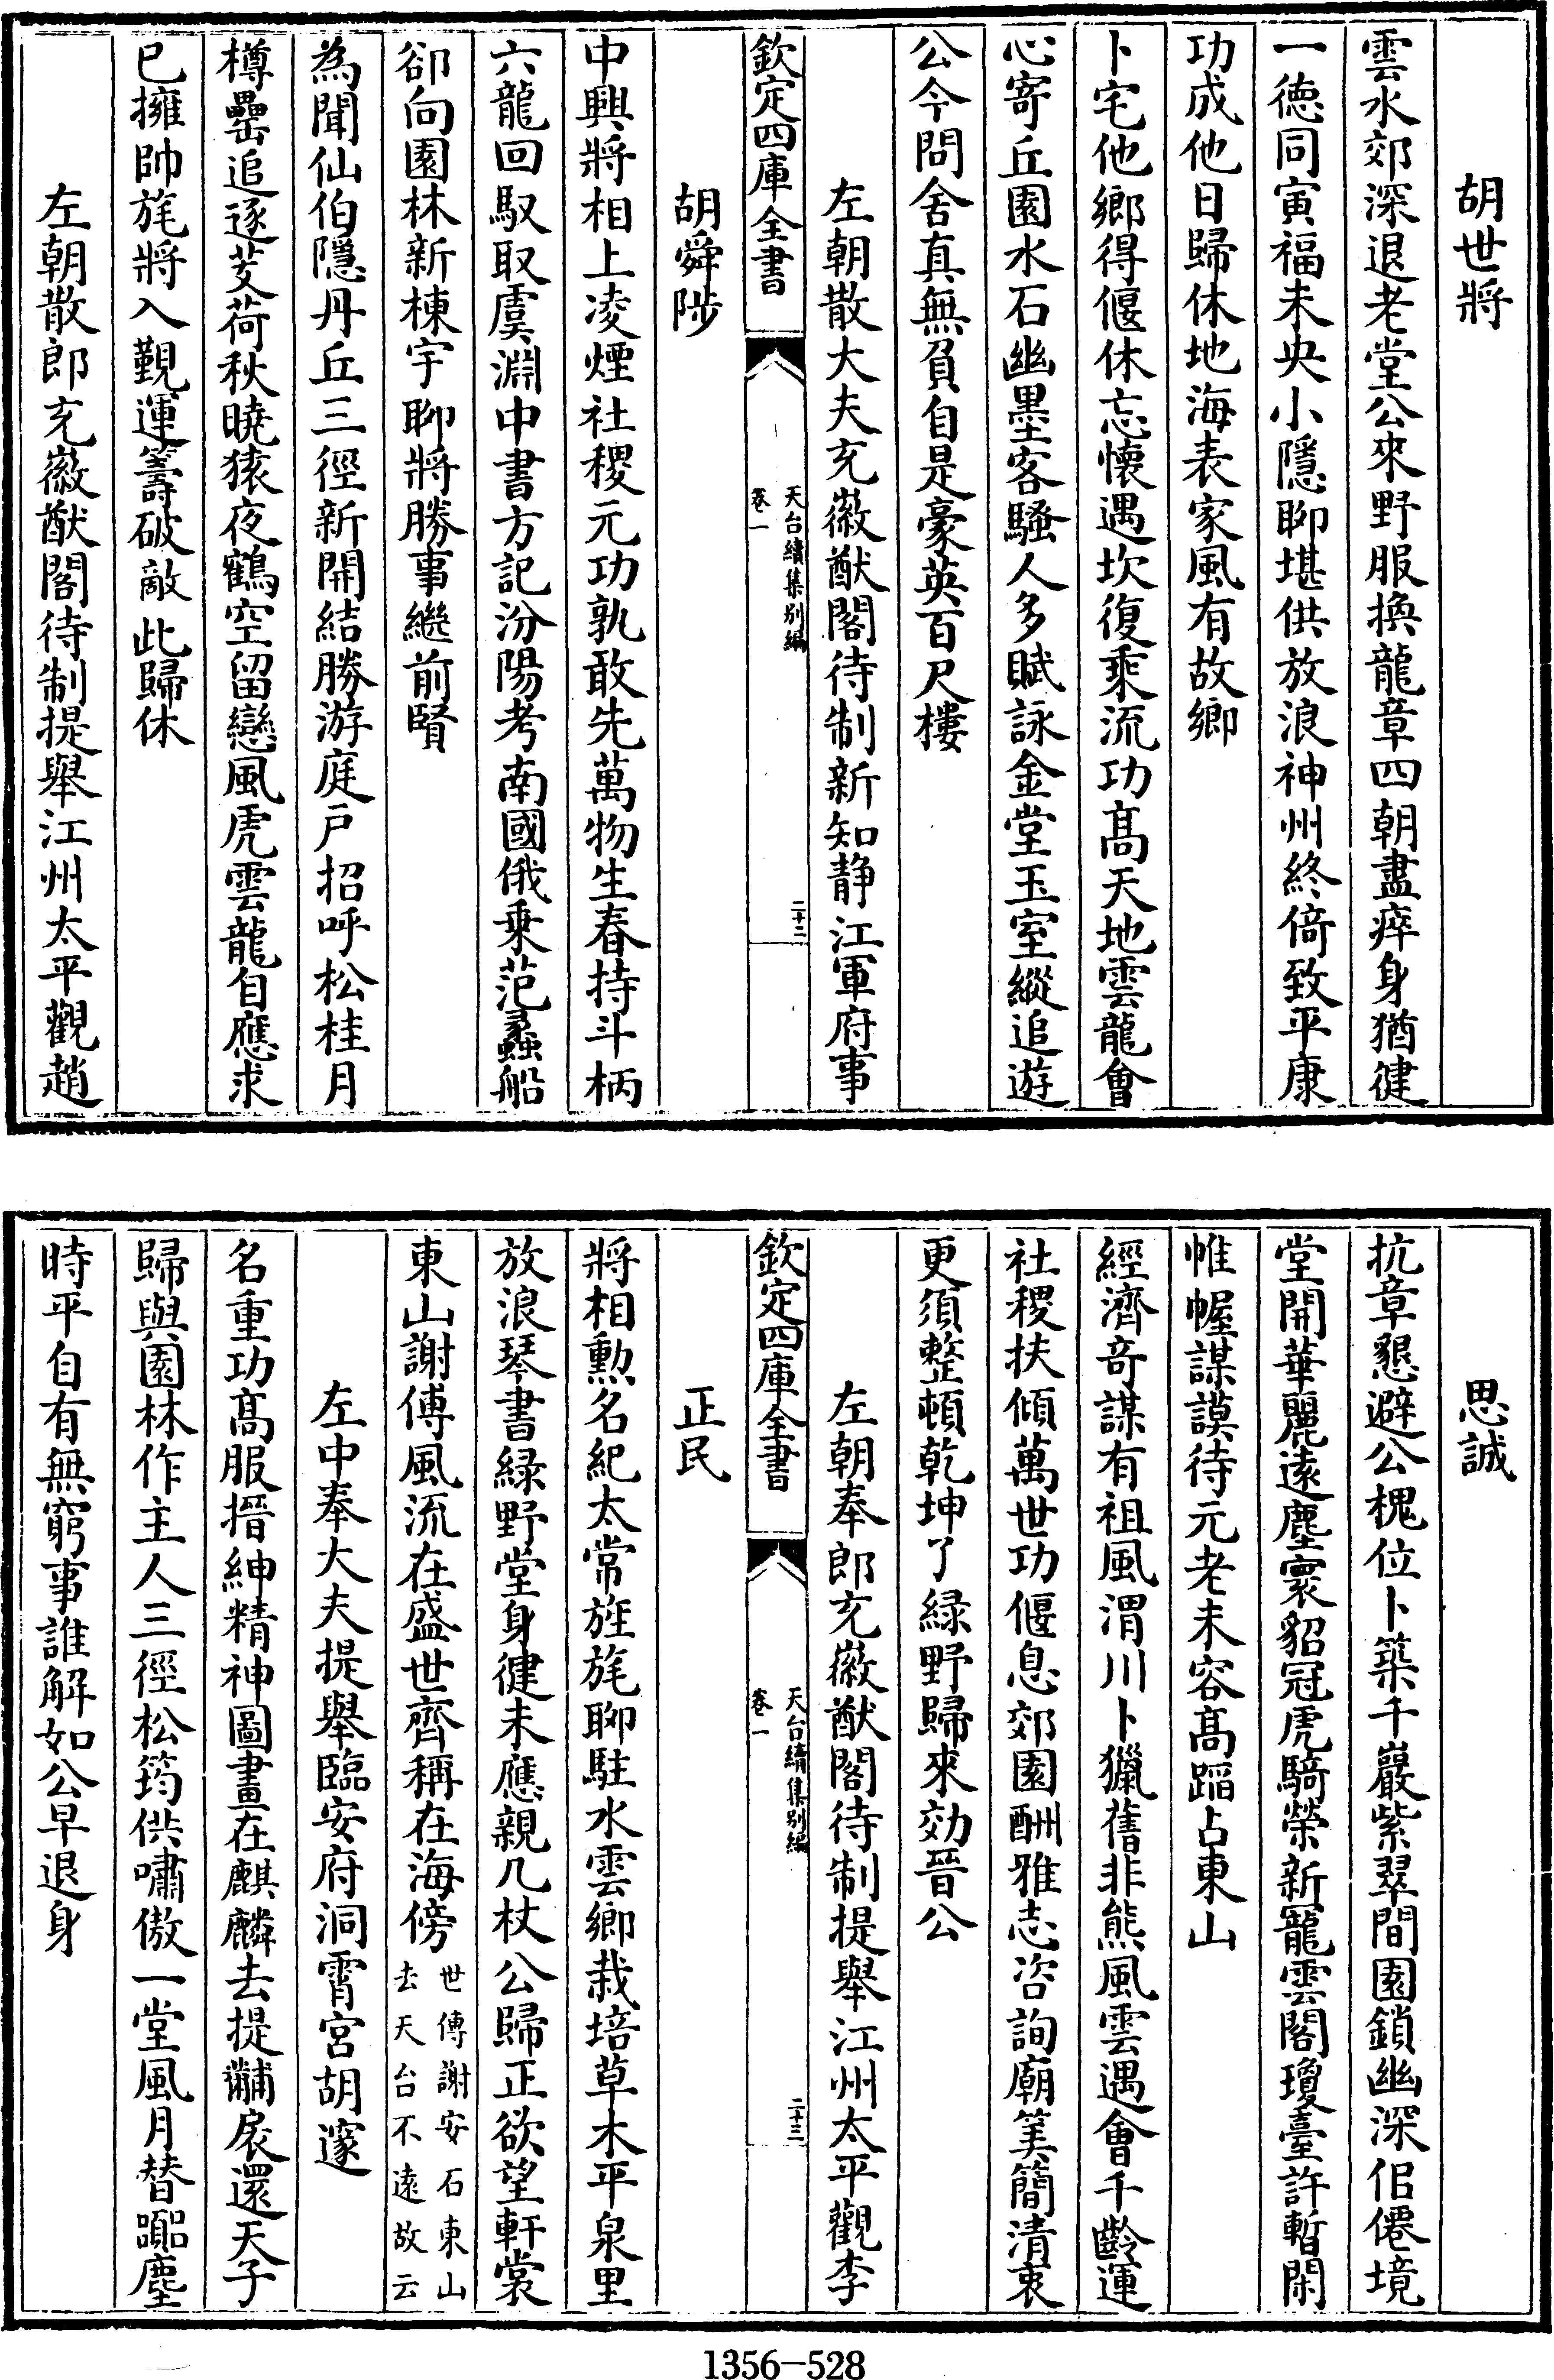 胡世將
雲水郊深退老堂公來野服換龍章四朝盡瘁身猶健
一德同寅福未央小隱聊堪供放浪神州終倚致平康
功成他日歸休地海表家風有故鄉
卜宅他鄉得偃休忘懷遇坎復乘流功髙天地雲龍會
心寄丘園水石幽墨客騷人多賦詠金堂玉室縱追遊
公今問舍真無負自是豪英百尺樓
左朝散大夫充徽猷閣待制新知静江軍府事
欽定四庫全書
天台續集别編
卷一
二十二
胡舜陟
中興將相上凌煙社稷元功孰敢先萬物生春持斗柄
六龍回馭取虞淵中書方記汾陽考南國俄乗范蠡船
卻向園林新棟宇聊將勝事繼前賢
為聞仙伯隱丹丘三徑新開結勝游庭戸招呼松桂月
樽罍追逐芰荷秋曉猿夜鶴空留戀風虎雲龍自應求
已擁帥旄將入覲運籌破敵此歸休
左朝散郎充徽猷閣待制提舉江州太平觀趙
思誠
抗章懇避公槐位卜築千巖紫翠間園鎖幽深佀僊境
堂開華麗逺塵寰貂冠虎騎榮新寵雲閣瓊臺許暫閑
帷幄謀謨待元老未容髙蹈占東山
經濟奇謀有祖風渭川卜獵舊非熊風雲遇會千齡運
社稷扶傾萬世功偃息郊園酬雅志咨詢廟筭簡清衷
更須整頓乾坤了緑野歸來効晉公
左朝奉郎充徽猷閣待制提舉江州太平觀李
欽定四庫全書
天台續集别編
卷一
二十三
正民
將相勲名紀太常旌旄聊駐水雲鄉栽培草木平泉里
放浪琴書緑野堂身健未應親几杖公歸正欲望軒裳
東山謝傅風流在盛世齊稱在海傍世傳謝安石東山去天台不逺故云
左中奉大夫提舉臨安府洞霄宮胡遂
名重功髙服搢紳精神圖畫在麒麟去提黼扆還天子
歸與園林作主人三徑松筠供嘯傲一堂風月替囂塵
時平自有無窮事誰解如公早退身
1356—528